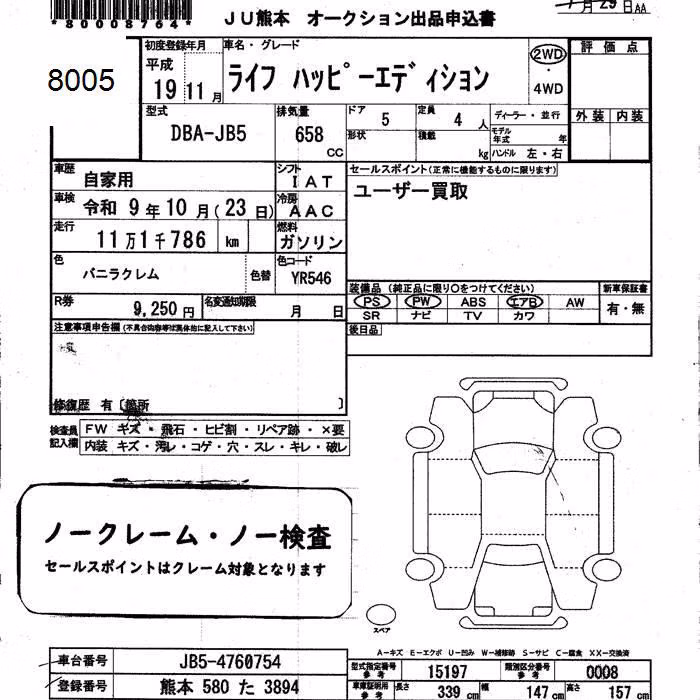 *80008764*
JU熊本 オークション出品申込書
月29日AA
8005
初度登録年月
平成
19 11月
車名・グレード
ライフ ハッピーエディション
2WD
4WD
評価点
外装 内装
型式
DBA-JB5
排気量
658
CC
ドア
5
定員
4人
形状
積載
kg
ディーラー・並行
モデル年式 年
ハンドル 左・右
車歴
自家用
シフト
IAT
車検
令和 9年10月(23日)
冷房
AAC
走行
11万1千786 km
燃料
ガソリン
色
バニラクレム
色替
色コード
YR546
R券
9,250円
名変通知期限
月 日
セールスポイント(正常に機能するものに限ります)
ユーザー買取
装備品(純正品に限り○をつけてください)
PS PW ABS エアB AW
SR ナビ TV カワ
新車保証書
有・無
後日品
注意事項申告欄(不具合内容等は具体的に記入して下さい)
修復歴 有〔箇所 〕
検査員
記入欄
FW キズ・飛石・ヒビ割・リペア跡・×要
内装 キズ・汚レ・コゲ・穴・スレ・キレ・破レ
ノークレーム・ノー検査
セールスポイントはクレーム対象となります
スペア
A−キズ E−エクボ U−凹み W−補修跡 S−サビ C−腐食 XX−交換済
車台番号
JB5-4760754
登録番号
熊本 580 た 3894
型式指定番号
参考
15197
類別区分番号
参考
0008
車庫証明用
参考
長さ
339 cm
幅
147 cm
高さ
157 cm